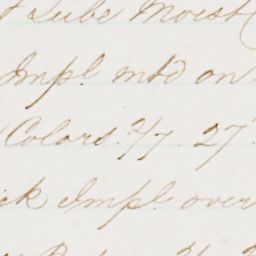 Tube Moist
Impl. mtd on
Colors. 2/7 27
ck Impl. over